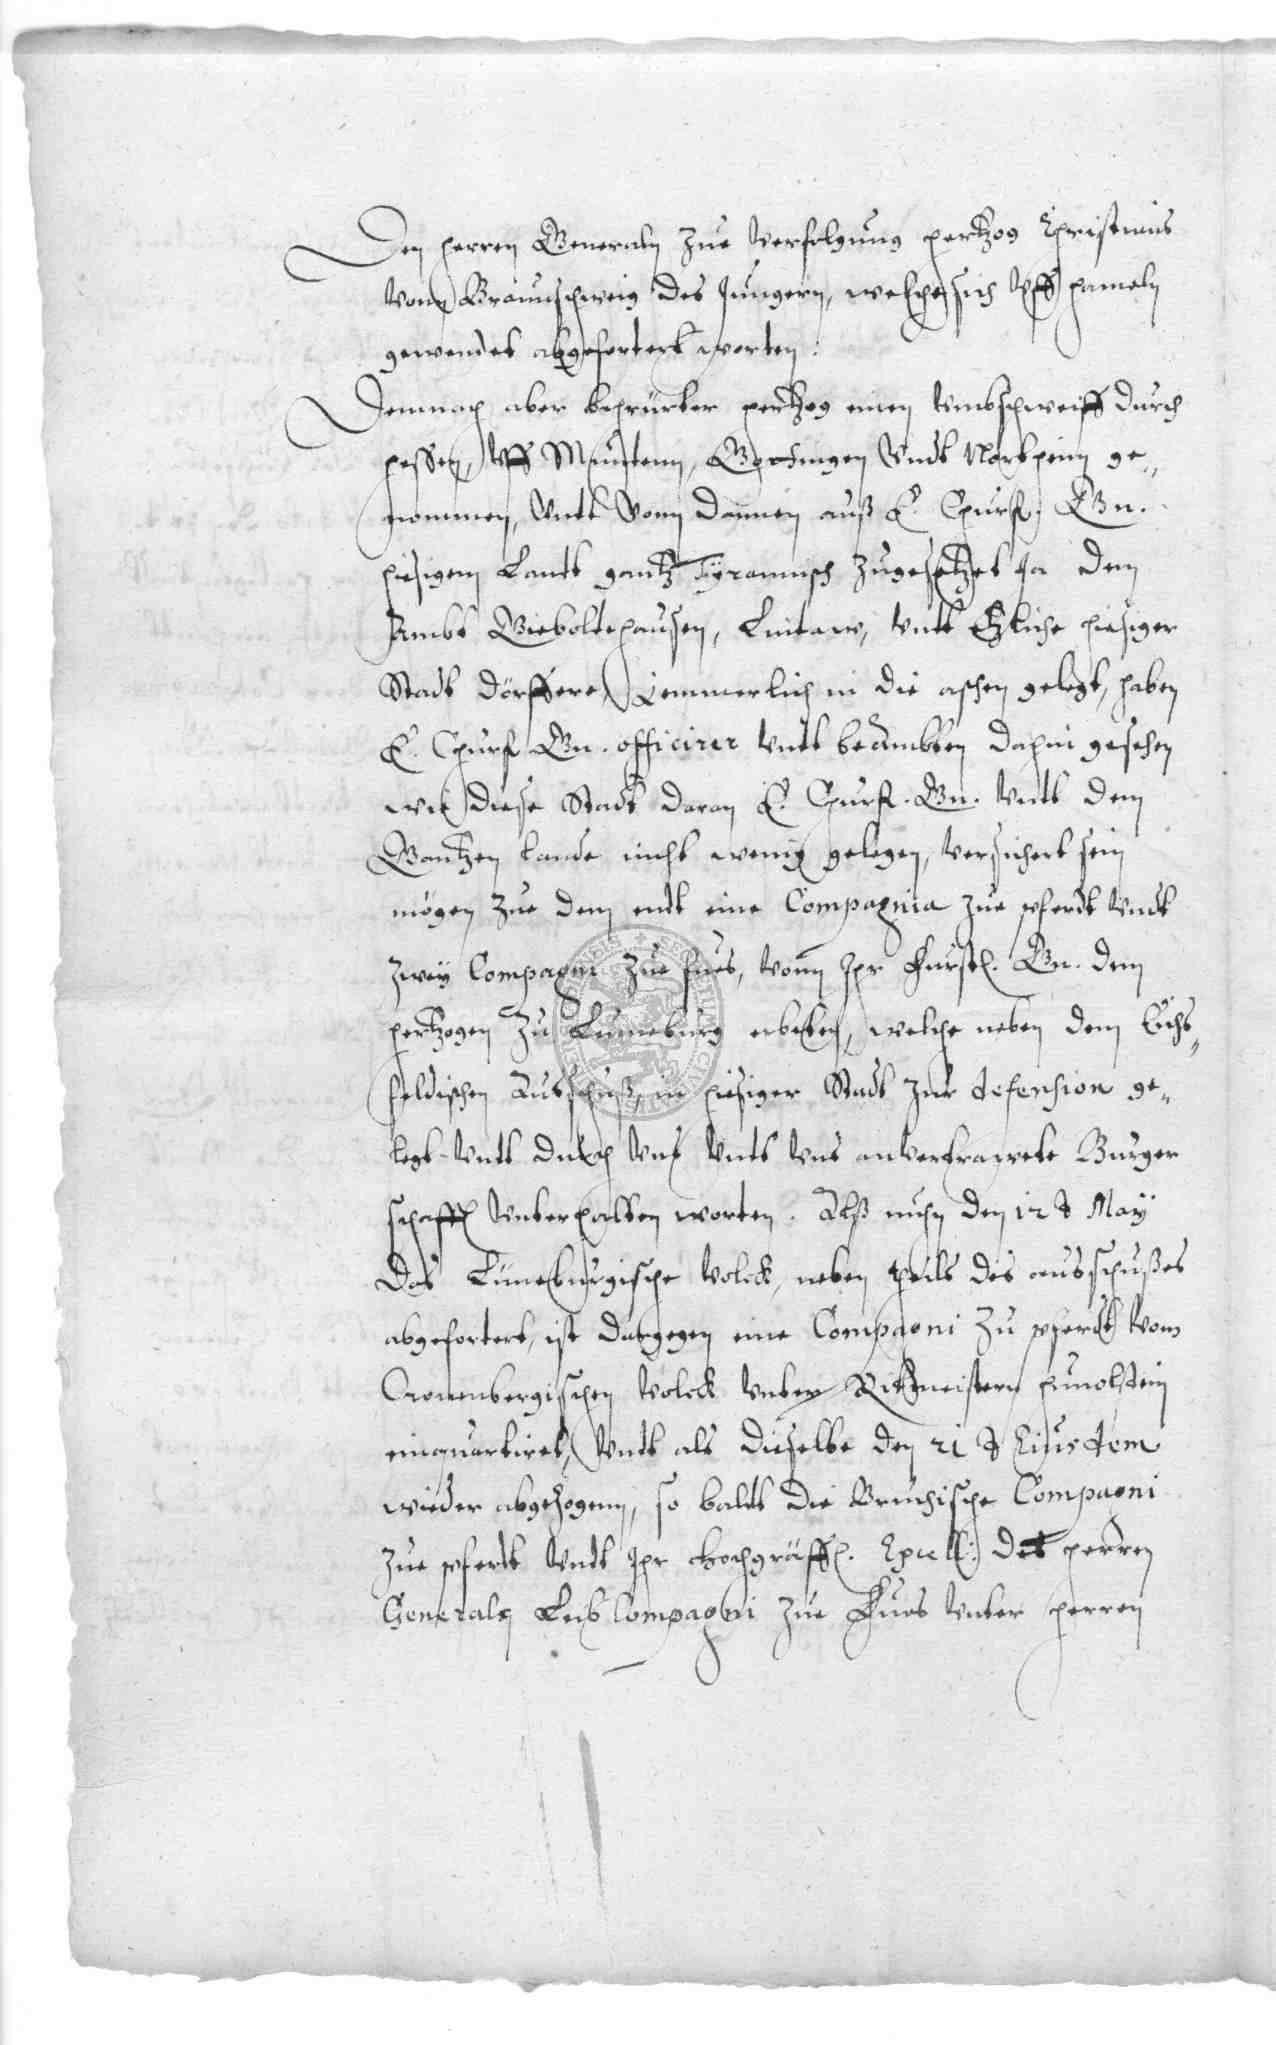 Den herren Generaln zue Verfolgung hertzog Christians
vonn Braunschweig des Jungern, welcher sich vff Hameln
gewendet abgefortert worten.
Demnach aber berürter hertzog einen vmbschweiff durch
Hessen, vff Muntenn, Gottingen vndt Northeim ge„
nommen, vntt vonn dannen auß E. Churf. Gn.
hiesigem Lantt gantz Tÿrannisch zugesetzet Ja dem
Ambt Gieboltehausen, Lintaw, vntt Etzliche hiesiger
Stadt dörffere, Jemmerlich in die aschen gelegt, haben
E. Churf. Gn. officirer vntt beambten dahin gesehen
wie diese Stadt daran E. Churf. Gn. vntt dem
Gantzen lande nicht wenig gelegen, versichert sein
mögen zue dem endt eine Compagnia zue pferdt vndt
zweÿ Compagni zue fues, vonn Ihr Fürstl. Gn. dem
hertzogen zu Luneburg erbeten, welche neben dem Eichs„
feldischen Außschuß, in hiesiger Stadt zur defension ge„
legt vntt durch vns vntt vns anvertrawete Burger
schafft vnterhalten worten. Alß nuhn den 12 t May
das Lüneburgische Volck, neben theils des ausschußes
abgefortert, ist dargegen eine Compagni zu pferdt vom
Cronenbergischen Volck vnter Rittmeistern Hunolstein
einquartiret, vntt als dieselbe den 21 t Eiusdem
wieder abgezogenn, so baltt die Bruchische Compagni
zue pferdt vndt Ihr Hochgräffl. Excell: des herren
Generaln LeibCompagni zue Fues vnter herren